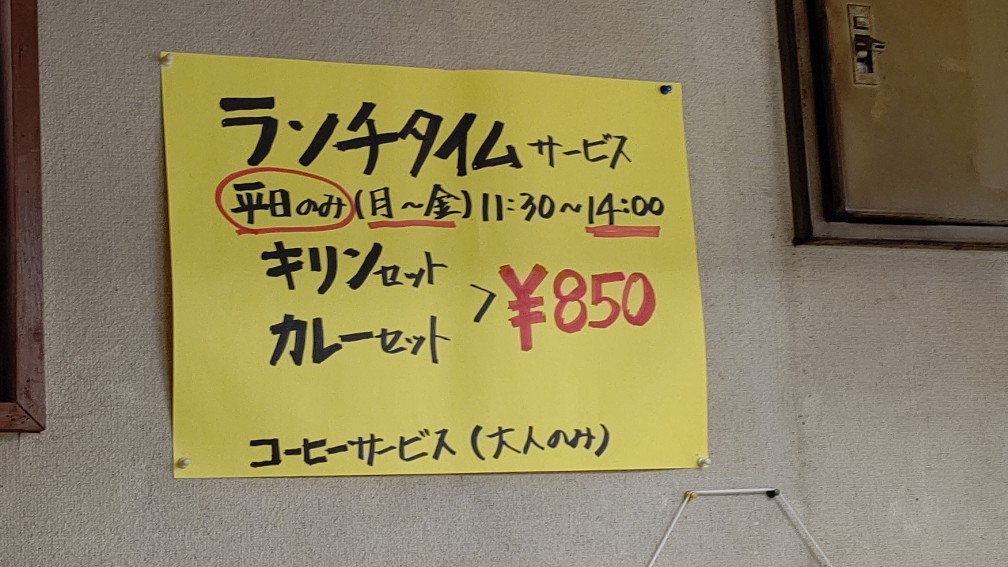 ランチタイム サービス
平日のみ(月～金)11:30～14:00
キリンセット
カレーセット
> ¥850
コーヒーサービス(大人のみ)